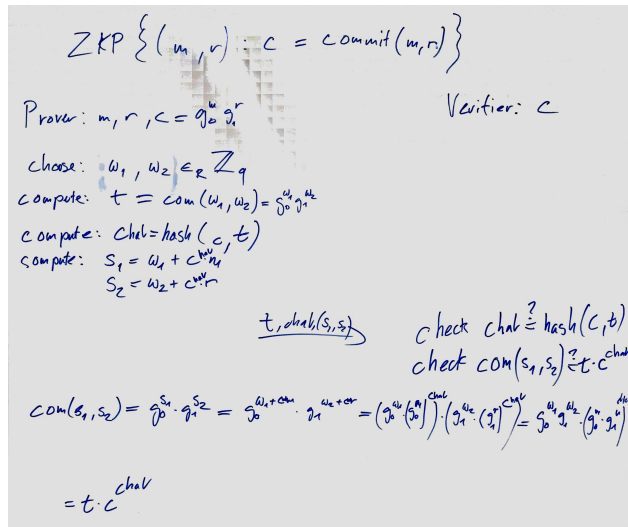 ZKP {(m, r) : c = commit(m, r)}
Prover: m, r, c = g₀ᵐ g₁ʳ
Verifier: c
choose: ω₁, ω₂ ∈_R ℤ_q
compute: t = com(ω₁, ω₂) = g₀^ω₁ g₁^ω₂
compute: chal = hash(c, t)
compute: S₁ = ω₁ + chal·m
S₂ = ω₂ + chal·r
t, chal, (s₁, s₂)
check chal ≟ hash(C, t)
check com(s₁, s₂) ≟ t · c^chal
com(s₁, s₂) = g₀^s₁ · g₁^s₂ = g₀^(ω₁+cm) · g₁^(ω₂+cr) = (g₀^ω₁ · (g₀^m)^chal) · (g₁^ω₂ · (g₁^r)^chal) = g₀^ω₁ g₁^ω₂ · (g₀^m · g₁^r)
= t · c^chal